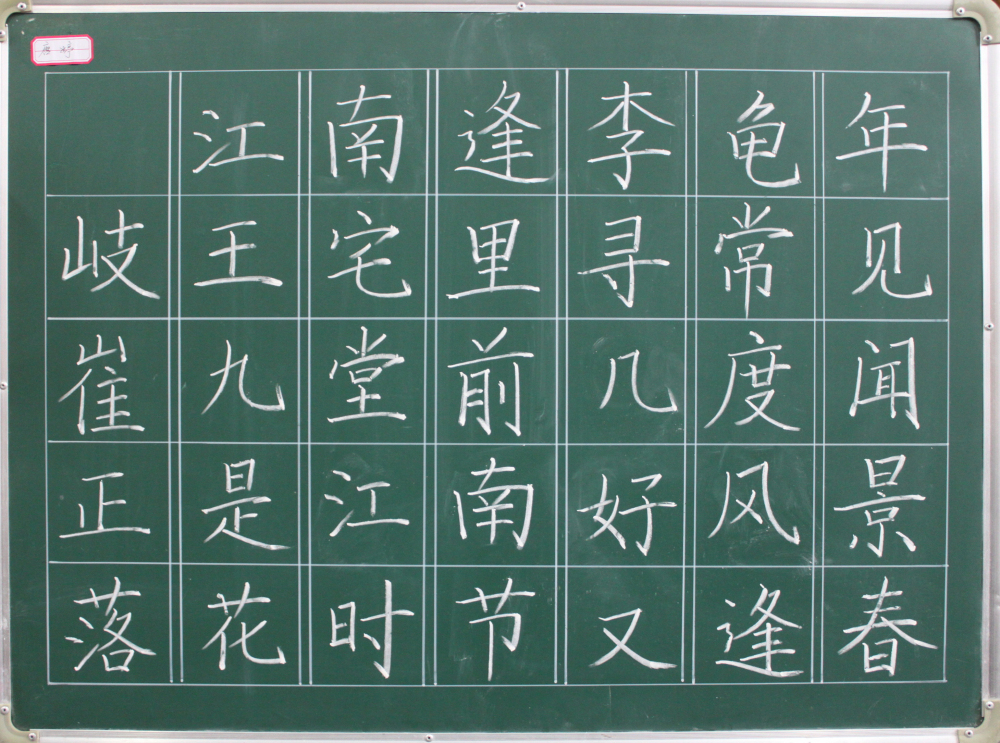 江南逢李龟年
岐王宅里寻常见
崔九堂前几度闻
正是江南好风景
落花时节又逢春